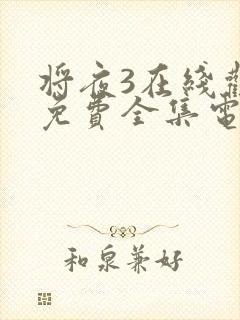 将夜3在线
免費全集電
和泉兼好